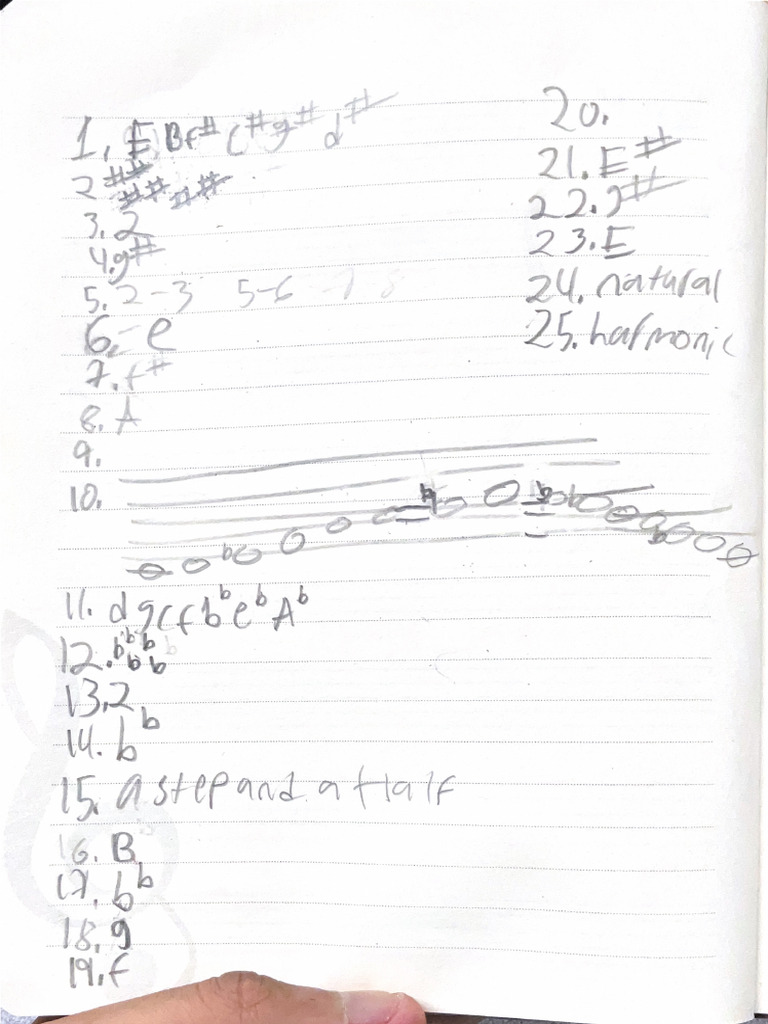 1. E B f# C# g# d#
2 ## ## ##
3. 2
4. g#
5. 2-3 5-6 7-8
6. e
7. f#
8. A
9.
10.
11. d g c f b♭ e♭ A♭
12. ♭♭♭♭♭
13. 2
14. b♭
15. a step and a Half
16. B
17. b♭
18. g
19. f
20.
21. E#
22. #
23. E
24. natural
25. harmonic